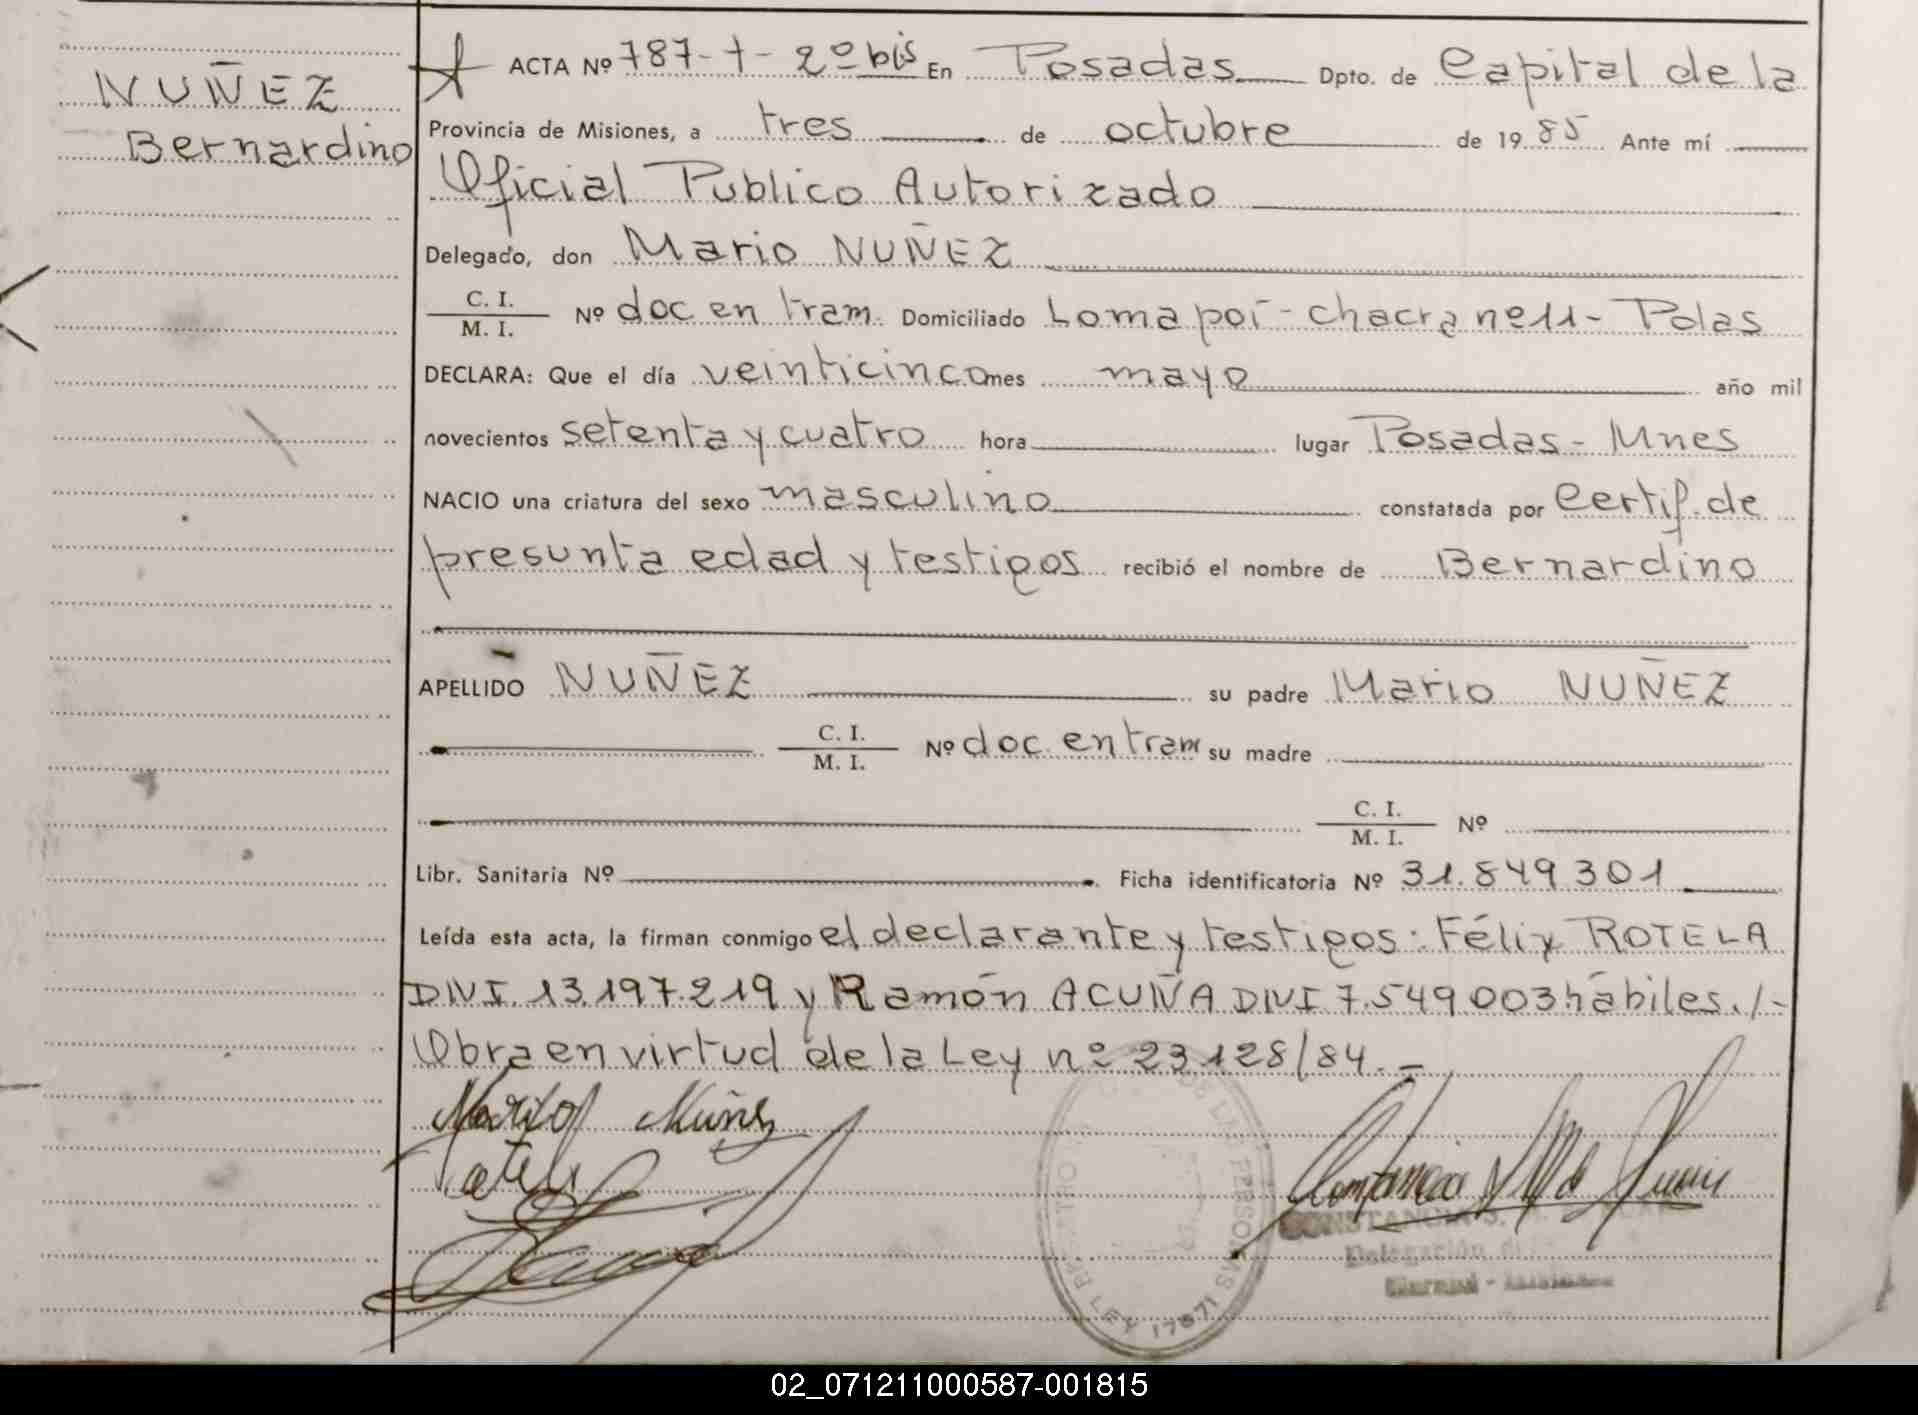 NUÑEZ
Bernardino
ACTA Nº 787-t-2º bis En Posadas Dpto. de Capital de la
Provincia de Misiones, a tres de octubre de 1985 Ante mí
Oficial Publico Autorizado
Delegado, don Mario NUÑEZ
C. I.
M. I.
Nº doc en tram. Domiciliado Loma poí - chacra nº 11 - Pdas
DECLARA: Que el día veinticinco mes mayo año mil
novecientos setenta y cuatro hora lugar Posadas - Mnes
NACIO una criatura del sexo masculino constatada por Certif. de
presunta edad y testigos recibió el nombre de Bernardino
APELLIDO NUÑEZ su padre Mario NUÑEZ
C. I.
M. I.
Nº doc. en tram su madre
C. I.
M. I.
Nº
Libr. Sanitaria Nº Ficha identificatoria Nº 31.849.301
Leída esta acta, la firman conmigo el declarante y testigos: Félix ROTELA
DNI. 13.197.219 y Ramón ACUÑA DNI 7.549.003 hábiles./-
Obra en virtud de la Ley nº 23.128/84.-
Núñez
DE LAS PERSONAS
LEY 17671
CONSTANCIA S.
Delegación
02_071211000587-001815